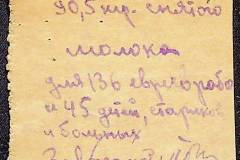 90,5 кг. снятого
молока
для 136 еврев раб
и 45 детей, стариков
и больных